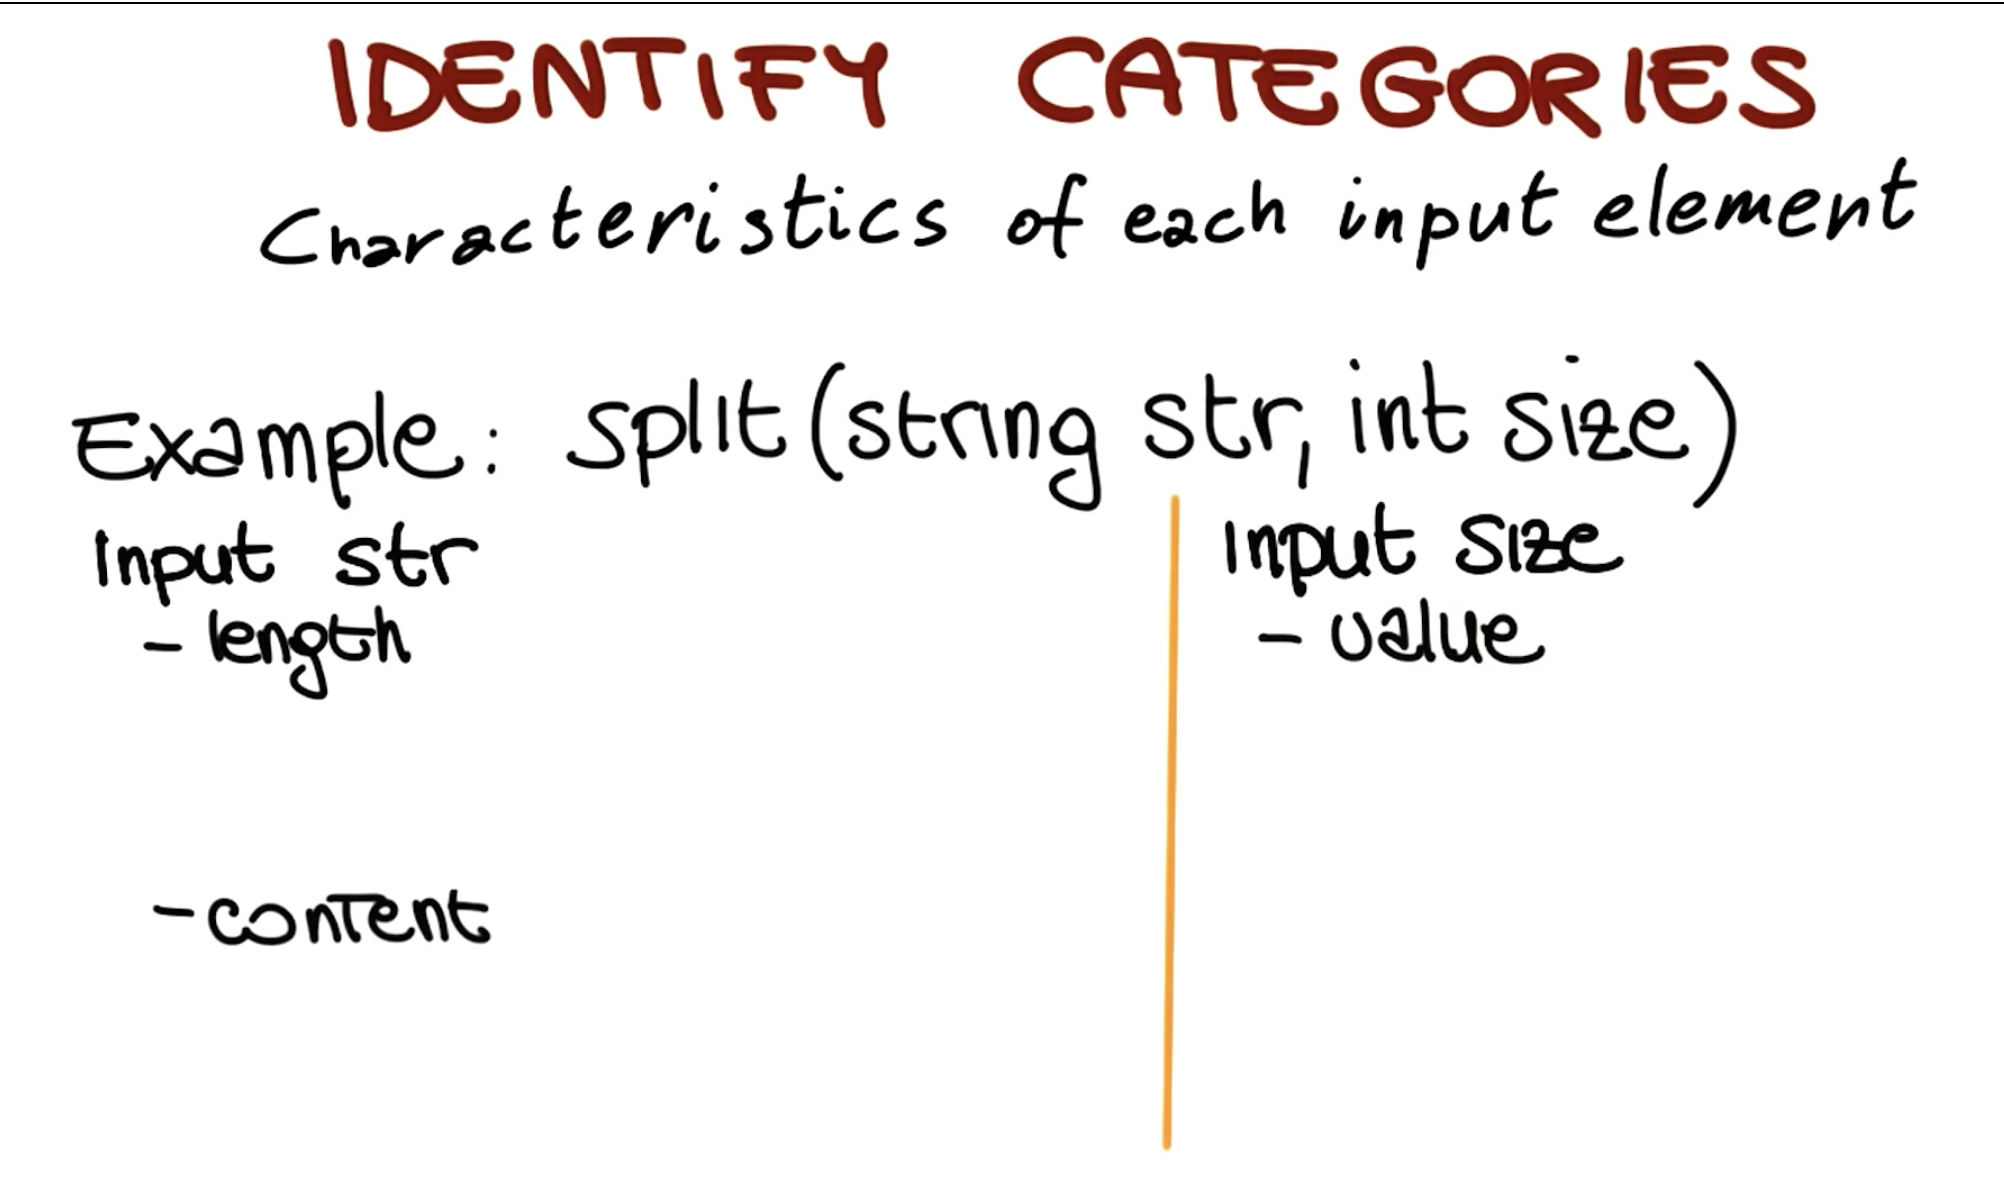 IDENTIFY CATEGORIES
Characteristics of each input element
Example: split(string str, int size)
Input str
- length
- content
Input size
- value